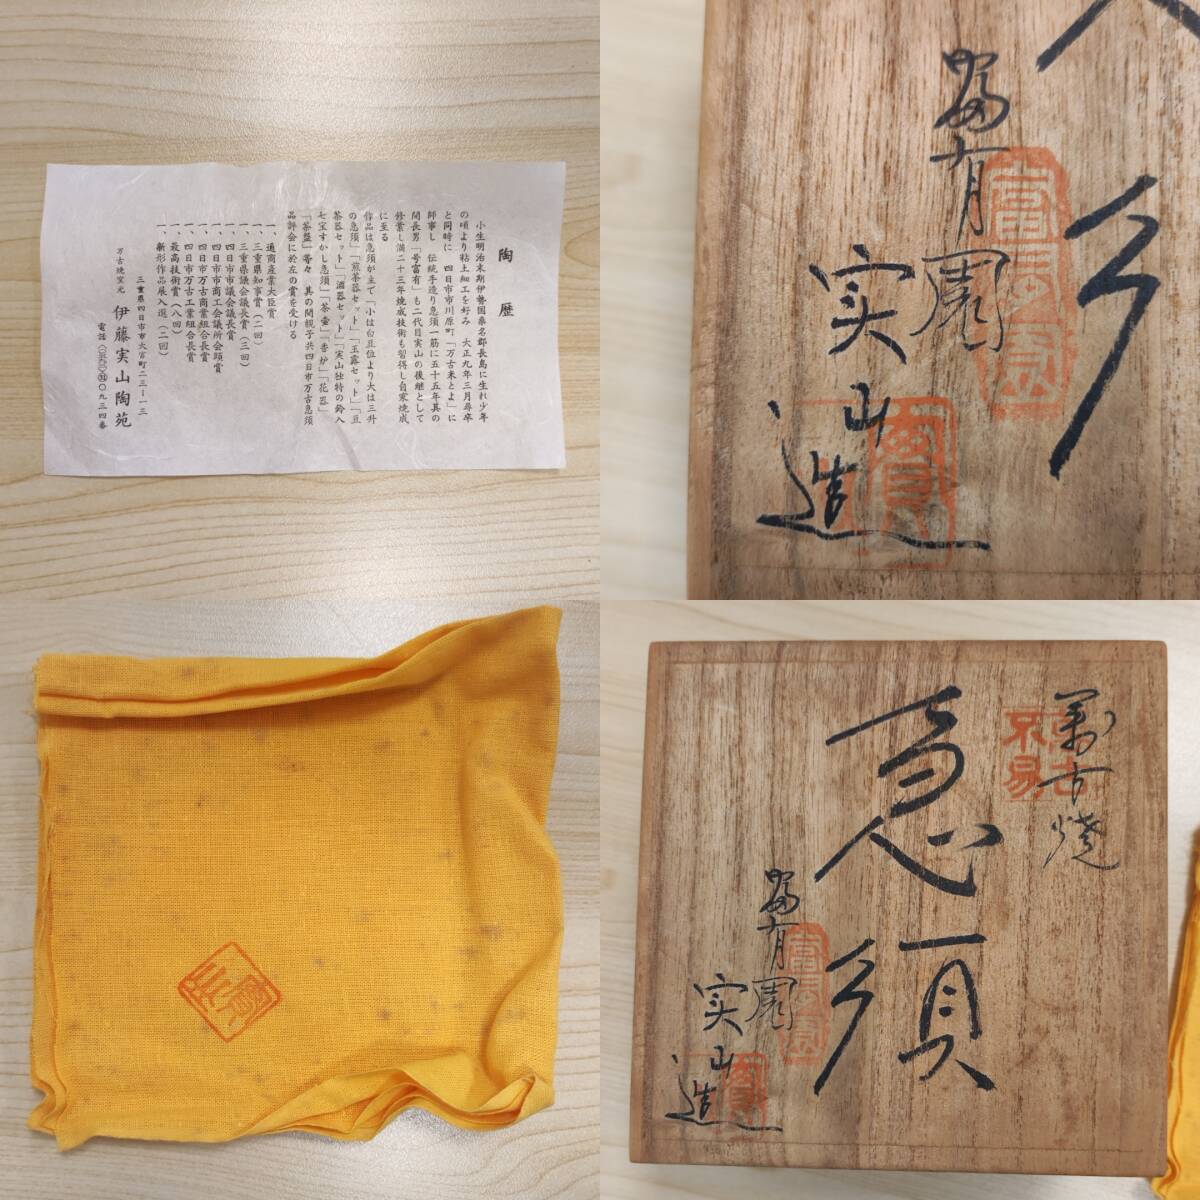 陶歴
小生明治末期伊勢国桑名郡長島に生れ少年
の頃より粘土細工を好み 大正九年三月尋卒
と同時に 四日市市川原町「万古来とよ」に
師事し 伝統手造り急須一筋に五十五年其の
間長男「号富有」も二代目実山の後継として
修業し満二十三年焼成技術も習得し自家焼成
に至る
作品は急須が主で「小は白豆位より大は三升
の急須」「煎茶器セット」「玉露セット」「豆
茶器セット」「酒器セット」「実山独特の鈴入
七宝すかし急須」「茶壷」「香炉」「花器」
「茶盤」等々 其の間親子共四日市万古急須
品評会に於左の賞を受ける
一、通商産業大臣賞
一、三重県知事賞(二回)
一、三重県議会議長賞(三回)
一、四日市市議会議長賞
一、四日市商工会議所会頭賞
一、四日市万古商業組合長賞
一、四日市万古工業組合長賞
一、最高技術賞(八回)
一、新形作品展入選(二回)
三重県四日市市大宮町二三ー一三
万古焼窯元 伊藤実山陶苑
富有園
実山造
富有園
實山
萬古焼
萬古不易
急須
富有園
実山造
富有園